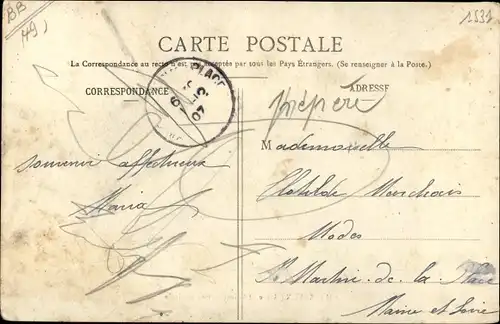 BB
49)
1531
CARTE POSTALE
La Correspondance au recto n'est pas acceptée par tous les Pays Étrangers. (Se renseigner à la Poste.)
CORRESPONDANCE
ADRESSE
PLACE
07
souvenir affectueux
Maria
Mademoiselle
Clotilde Marchais
Modes
St Martin de la Place
Maine et Loire